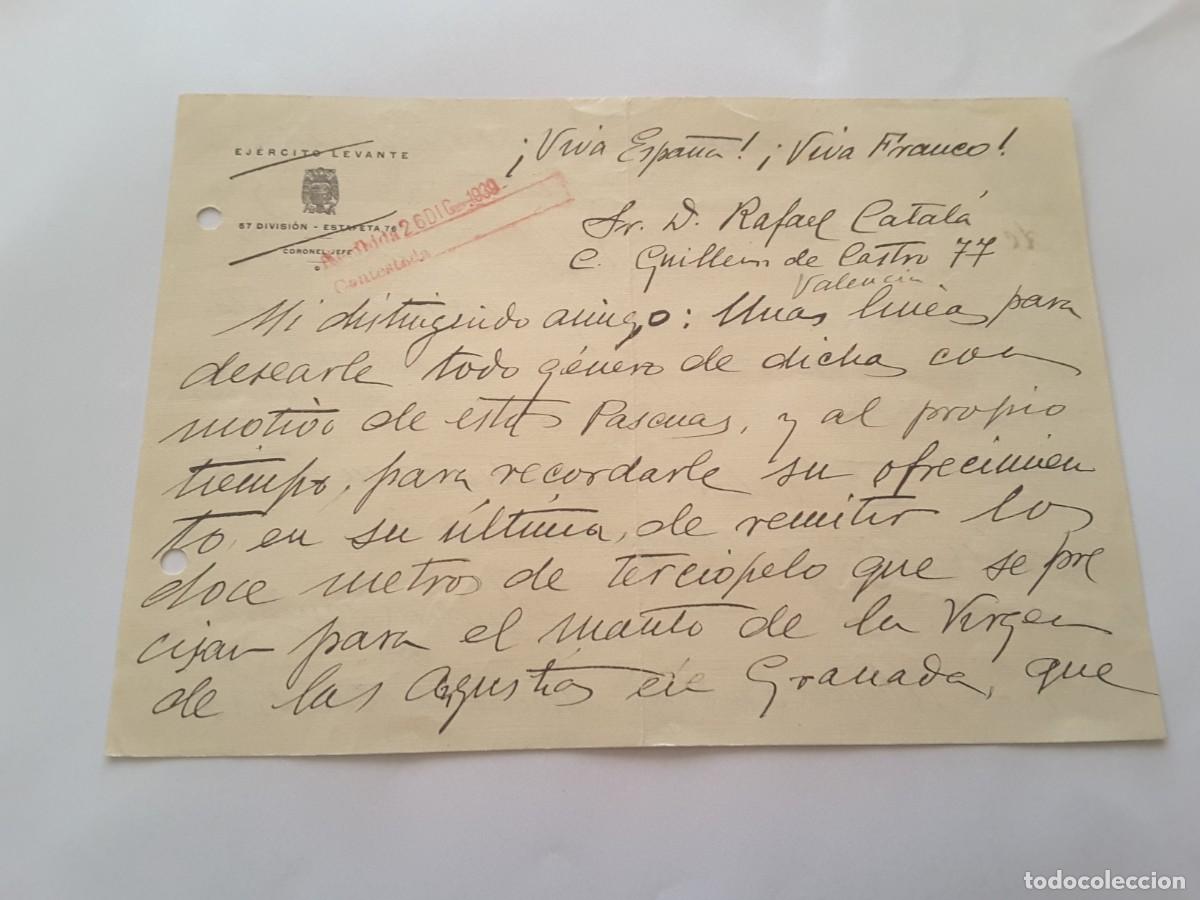 EJERCITO LEVANTE
57 DIVISIÓN - ESTAFETA 76
CORONEL JEFE
26 DIC 1939
Contestada
¡Viva España! ¡Viva Franco!
Sr. D. Rafael Catalá
C. Guillem de Castro 77
Valencia
Mi distinguido amigo: Unas lineas para
desearle todo género de dichas con
motivo de estas Pascuas, y al propio
tiempo, para recordarle su ofrecimien
to, en su última, de remitir los
doce metros de terciopelo que se pre
cisan para el manto de la Virgen
de las Agustias en Granada, que
todocoleccion